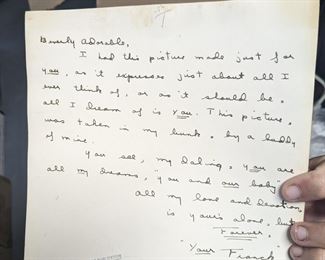 Beverly adorable,
I had this picture made just for
you, as it expresses just about all I
ever think of, or as it should be,
all I dream of is you. This picture,
was taken in my bunk, by a buddy
of mine.
You see, my Daling, you are
all my dreams, "you and our baby"
all my love and Devotion,
is yours alone, but
Forever,
"Your Franck